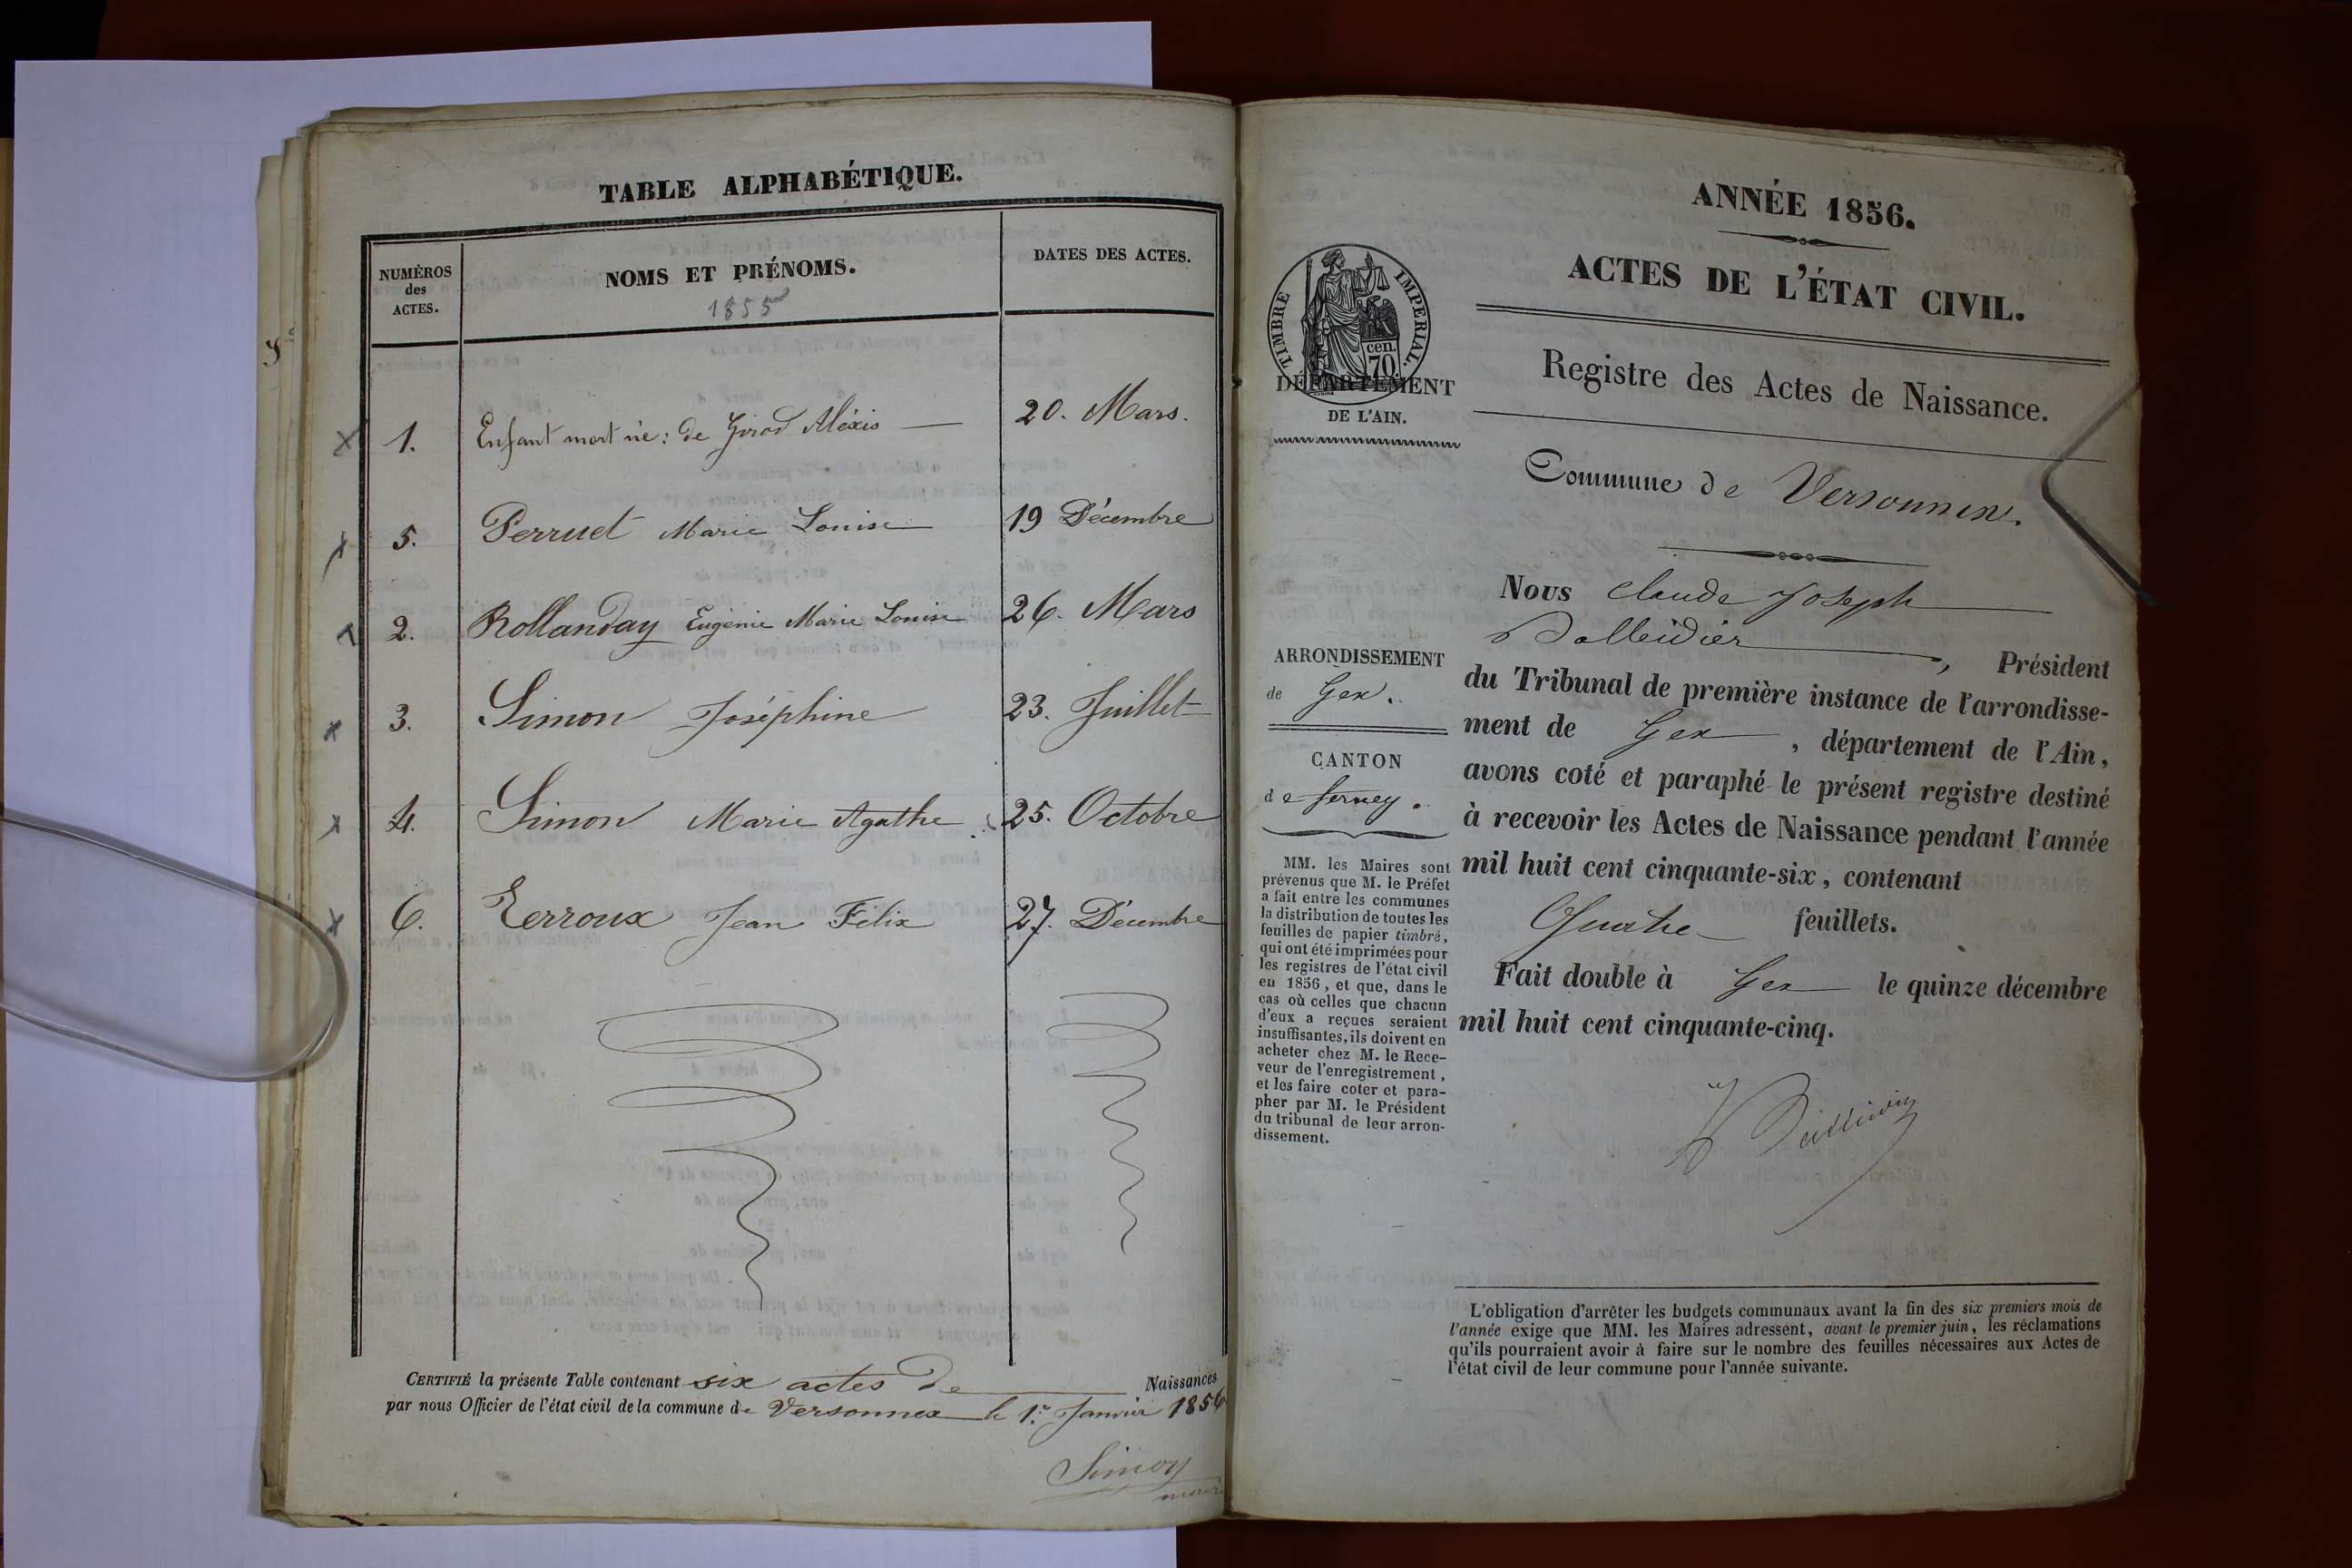 TABLE ALPHABÉTIQUE.
NUMÉROS des ACTES.
NOMS ET PRÉNOMS.
1855
DATES DES ACTES.
1. Enfant mort né : de Girod Aléxis 20. Mars.
5. Perruet Marie Louise 19 Décembre
2. Rollanday Eugénie Marie Louise 26. Mars
3. Simon Joséphine 23. Juillet
4. Simon Marie Agathe 25. Octobre
6. Terroux Jean Félix 27. Décembre
CERTIFIÉ la présente Table contenant six actes de Naissances
par nous Officier de l'état civil de la commune de Versonnex le 1er Janvier 1856
Simon
maire
ANNÉE 1856.
ACTES DE L'ÉTAT CIVIL.
TIMBRE IMPERIAL.
70 cen.
DÉPARTEMENT
DE L'AIN.
Registre des Actes de Naissance.
Commune de Versonnex.
Nous Claude Joseph
, Président
du Tribunal de première instance de l'arrondisse-
ment de Gex , département de l'Ain,
avons coté et paraphé le présent registre destiné
à recevoir les Actes de Naissance pendant l'année
mil huit cent cinquante-six, contenant
Quatre feuillets.
Fait double à Gex le quinze décembre
mil huit cent cinquante-cinq.
ARRONDISSEMENT
de Gex.
CANTON
de Ferney.
MM. les Maires sont
prévenus que M. le Préfet
a fait entre les communes
la distribution de toutes les
feuilles de papier timbré,
qui ont été imprimées pour
les registres de l'état civil
en 1856, et que, dans le
cas où celles que chacun
d'eux a reçues seraient
insuffisantes, ils doivent en
acheter chez M. le Rece-
veur de l'enregistrement,
et les faire coter et para-
pher par M. le Président
du tribunal de leur arron-
dissement.
L'obligation d'arrêter les budgets communaux avant la fin des six premiers mois de
l'année exige que MM. les Maires adressent, avant le premier juin, les réclamations
qu'ils pourraient avoir à faire sur le nombre des feuilles nécessaires aux Actes de
l'état civil de leur commune pour l'année suivante.